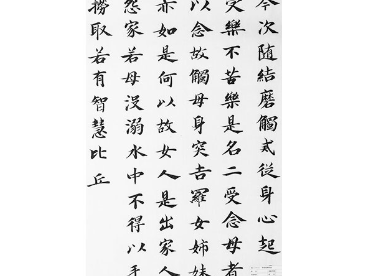 今次随結磨觸戒從身心起
受樂不苦樂是名二受念母者
以念故觸母身突吉羅女姊妹
亦如是何以故女人是出家人
怨家若母没溺水中不得以手
撈取若有智慧比丘